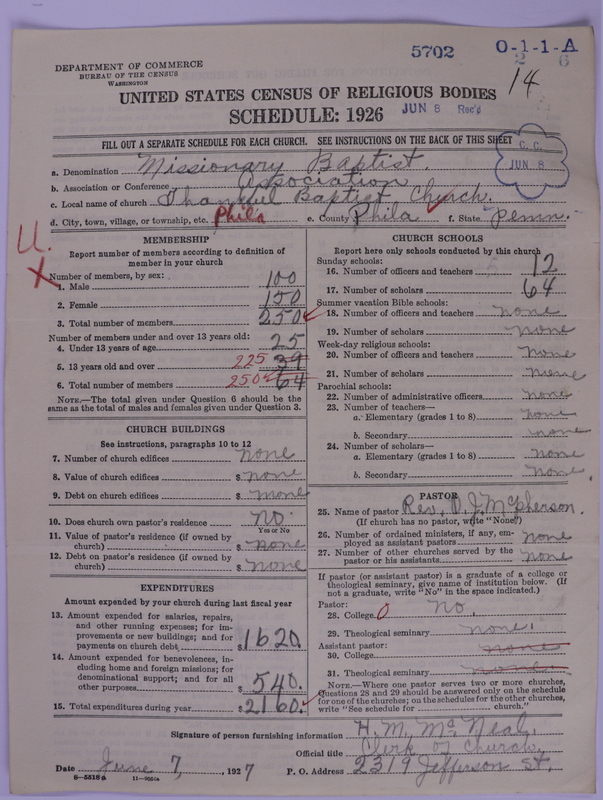 5702
0-1-1-A
2 6
DEPARTMENT OF COMMERCE
BUREAU OF THE CENSUS
WASHINGTON
14
UNITED STATES CENSUS OF RELIGIOUS BODIES
SCHEDULE: 1926
JUN 8 Rec'd
FILL OUT A SEPARATE SCHEDULE FOR EACH CHURCH. SEE INSTRUCTIONS ON THE BACK OF THIS SHEET
C. C.
JUN. 8
a. Denomination Missionary Baptist.
b. Association or Conference Association
c. Local name of church Thankful Baptist Church.
d. City, town, village, or township, etc. Phila e. County Phila f. State Penn.
U.
X
MEMBERSHIP
Report number of members according to definition of member in your church
Number of members, by sex:
1. Male 100
2. Female 150
3. Total number of members 250
Number of members under and over 13 years old:
4. Under 13 years of age 25
5. 13 years old and over 225 39
6. Total number of members 250 64
NOTE.—The total given under Question 6 should be same as the total of males and females given under Question 3.
CHURCH BUILDINGS
See instructions, paragraphs 10 to 12
7. Number of church edifices none
8. Value of church edifices $ none
9. Debt on church edifices $ none
10. Does church own pastor's residence No.
Yes or No
11. Value of pastor's residence (if owned by church) $ none
12. Debt on pastor's residence (if owned by church) $ none
EXPENDITURES
Amount expended by your church during last fiscal year
13. Amount expended for salaries, repairs, and other running expenses; for improvements or new buildings; and for payments on church debt $ 1620.
14. Amount expended for benevolences, including home and foreign missions; for denominational support; and for all other purposes $ 540.
15. Total expenditures during year $ 2160.
CHURCH SCHOOLS
Report here only schools conducted by this church
Sunday schools:
16. Number of officers and teachers 12
17. Number of scholars 64
Summer vacation Bible schools:
18. Number of officers and teachers none
19. Number of scholars none
Week-day religious schools:
20. Number of officers and teachers none
21. Number of scholars none
Parochial schools:
22. Number of administrative officers none
23. Number of teachers—
a. Elementary (grades 1 to 8) none
b. Secondary none
24. Number of scholars—
a. Elementary (grades 1 to 8) none
b. Secondary none
PASTOR
25. Name of pastor Rev. D. J. McPherson.
(If church has no pastor, write "None")
26. Number of ordained ministers, if any, employed as assistant pastors none
27. Number of other churches served by the pastor or his assistants none
If pastor (or assistant pastor) is a graduate of a college or theological seminary, give name of institution below. (If not a graduate, write "No" in the space indicated.)
Pastor:
28. College 0 No.
29. Theological seminary none.
Assistant pastor:
30. College none
31. Theological seminary none
NOTE.—Where one pastor serves two or more churches, Questions 28 and 29 should be answered only on the schedule for one of the churches; on the schedules for the other churches, write "See schedule for church."
Signature of person furnishing information H. M. McNeal.
Official title Clerk of Church.
Date June 7, 1927 P. O. Address 2319 Jefferson St.
8—5518a 11—9551a